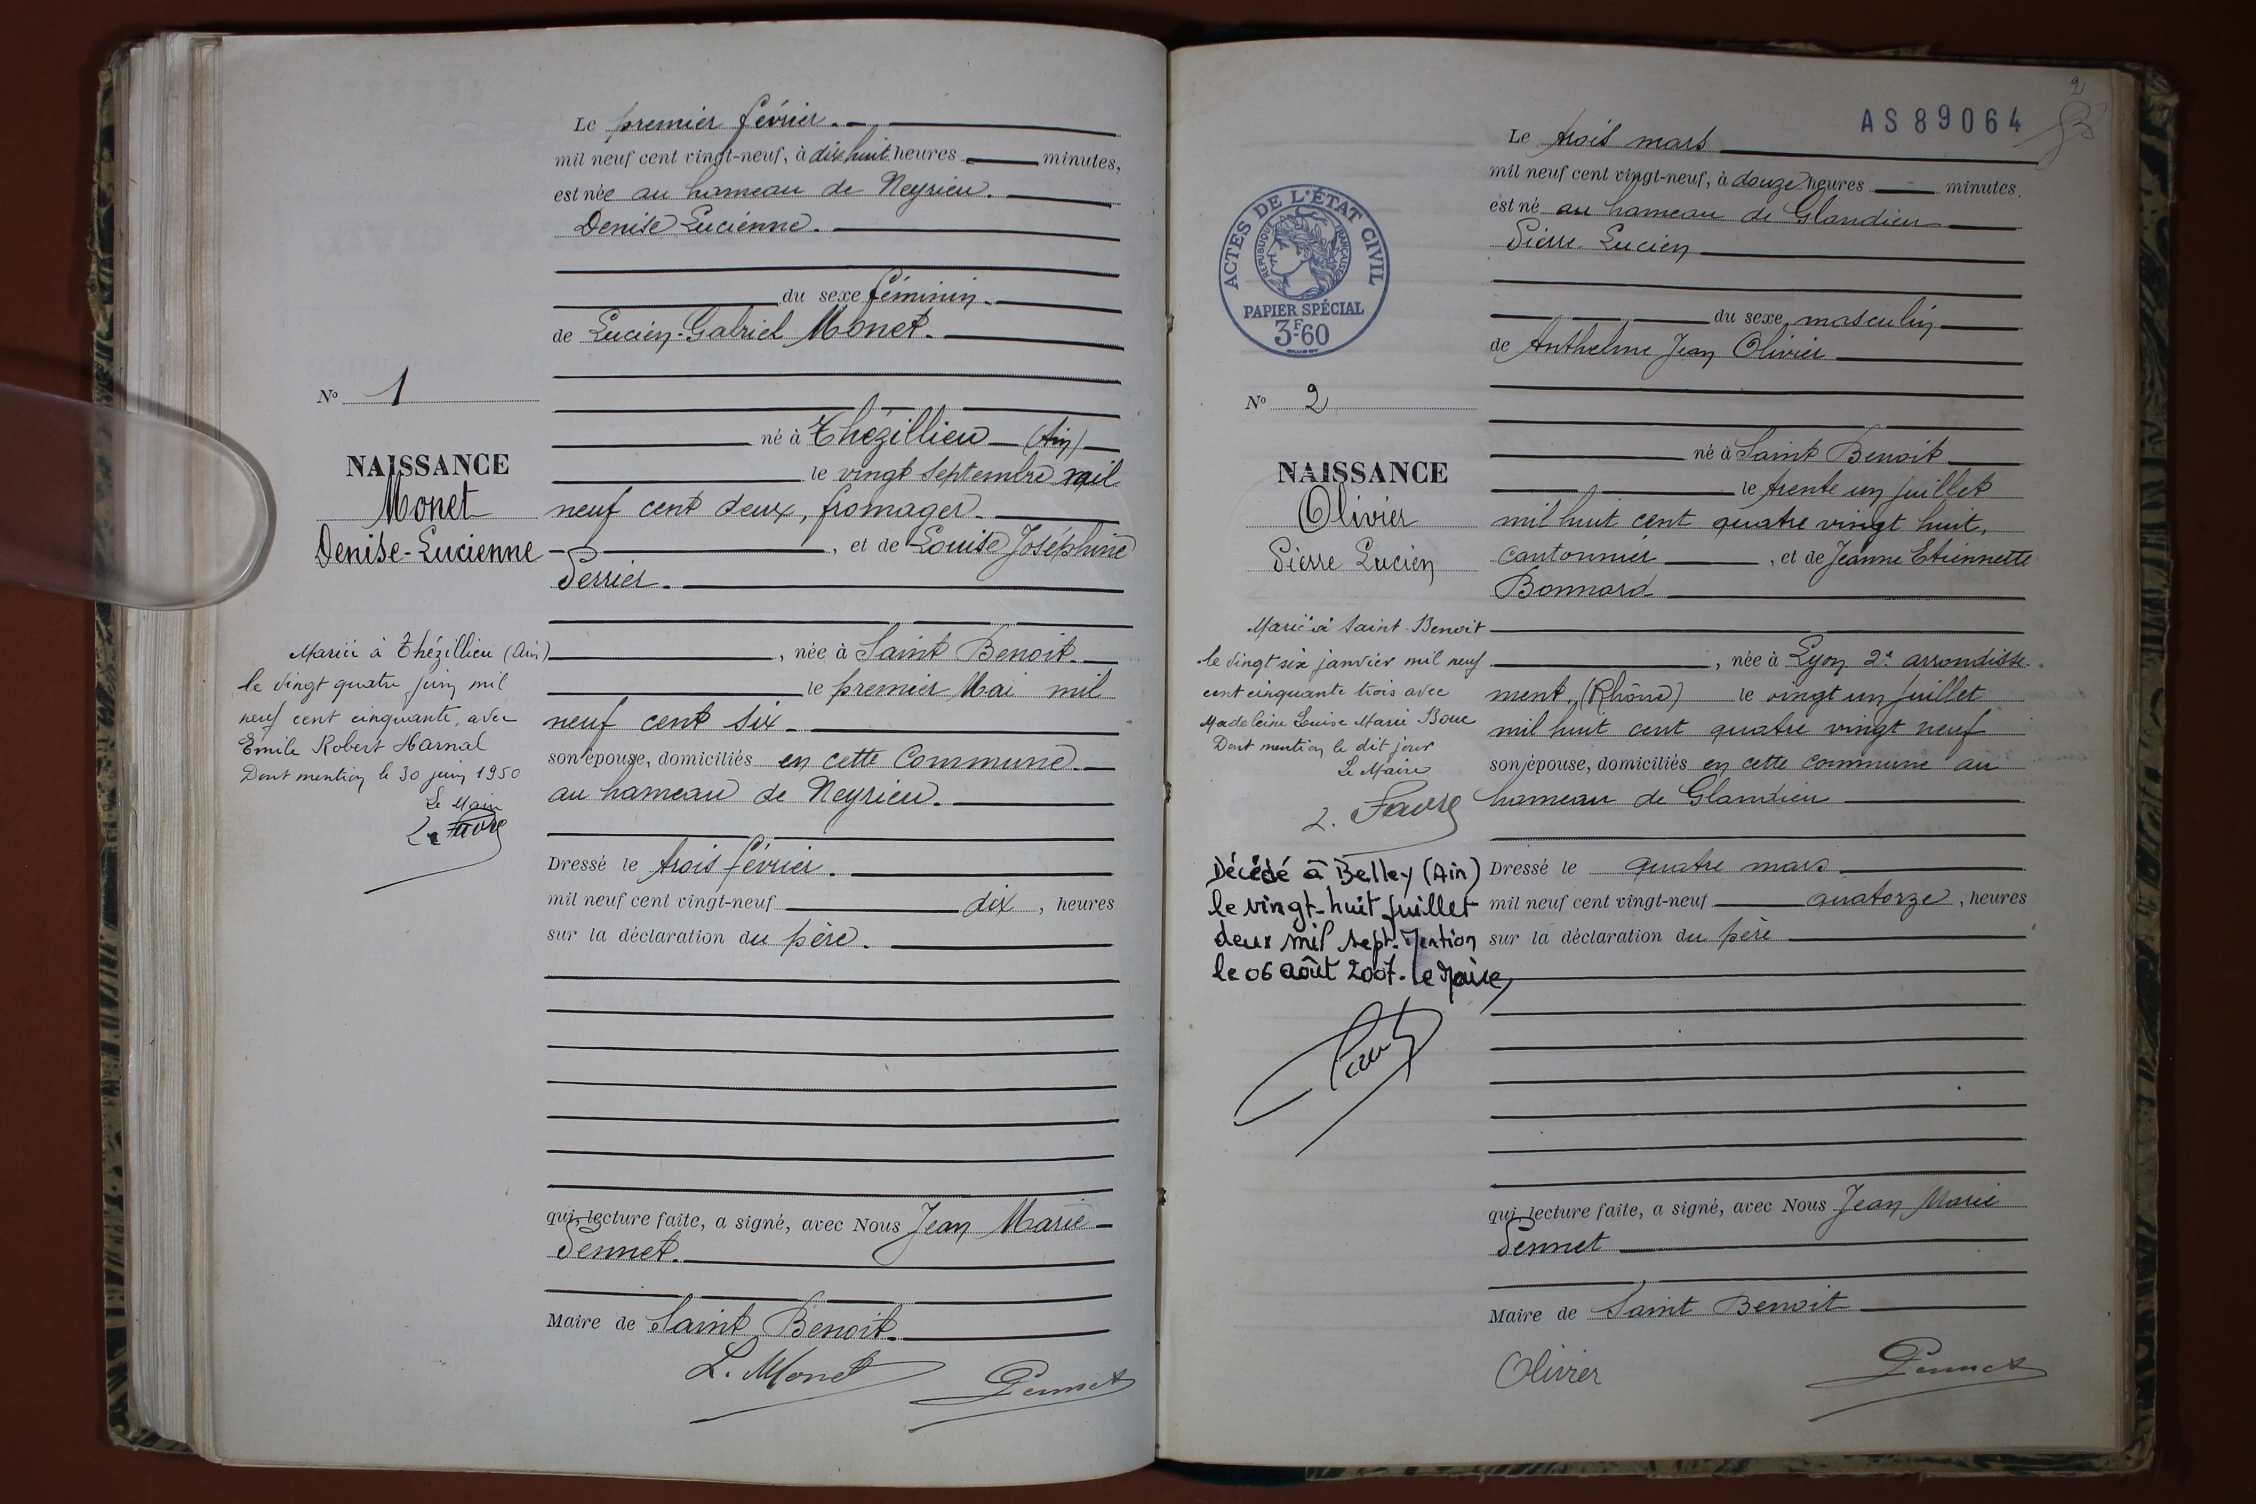 Le premier février.
mil neuf cent vingt-neuf, à dix huit heures minutes,
est née au hameau de Neyrieu.
Denise Lucienne.
du sexe féminin.
de Lucien-Gabriel Monet.
né à Thézillieu (Ain)
le vingt septembre mil
neuf cent deux, fromager.
, et de Louise Joséphine
Perrier.
, née à Saint Benoit.
le premier Mai mil
neuf cent six.
son épouse, domiciliés en cette Commune.
au hameau de Neyrieu.
Dressé le trois février.
mil neuf cent vingt-neuf dix, heures
sur la déclaration du père.
qui lecture faite, a signé, avec Nous Jean Marie
Pennet.
Maire de Saint Benoit.
L. Monet
Pennet
No 1
NAISSANCE
Monet
Denise-Lucienne
Mariée à Thézillieu (Ain)
le vingt quatre juin mil
neuf cent cinquante, avec
Emile Robert Harnal
Dont mention le 30 juin 1950
Le Maire
L. Favre
2
AS89064
Le trois mars
mil neuf cent vingt-neuf, à douze heures minutes.
est né au hameau de Glandieu
Pierre Lucien
du sexe masculin
de Anthelme Jean Olivier
né à Saint Benoit
le trente un juillet
mil huit cent quatre vingt huit,
cantonnier, et de Jeanne Etiennette
Bonnard
, née à Lyon 2e arrondisse-
ment, (Rhône) le vingt un juillet
mil huit cent quatre vingt neuf
son épouse, domiciliés en cette commune au
hameau de Glandieu
Dressé le quatre mars
mil neuf cent vingt-neuf quatorze, heures
sur la déclaration du père
qui lecture faite, a signé, avec Nous Jean Marie
Pennet
Maire de Saint Benoit
Olivier
Pennet
ACTES DE L'ÉTAT CIVIL
RÉPUBLIQUE FRANÇAISE
PAPIER SPÉCIAL
3F60
No 2
NAISSANCE
Olivier
Pierre Lucien
Marié à Saint-Benoit
le vingt six janvier mil neuf
cent cinquante trois avec
Madeleine Louise Marie Bouc
Dont mention le dit jour
Le Maire
L. Favre
Décédé à Belley (Ain)
le vingt-huit juillet
deux mil sept. Mention
le 06 août 2007. Le Maire,